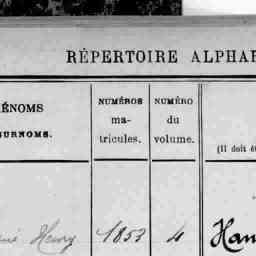 RÉPERTOIRE ALPHA
ÉNOMS
SURNOMS.
NUMÉROS
ma-
tricules.
NUMÉRO
du
volume.
(Il doit ê
Henry 1853 4 Han